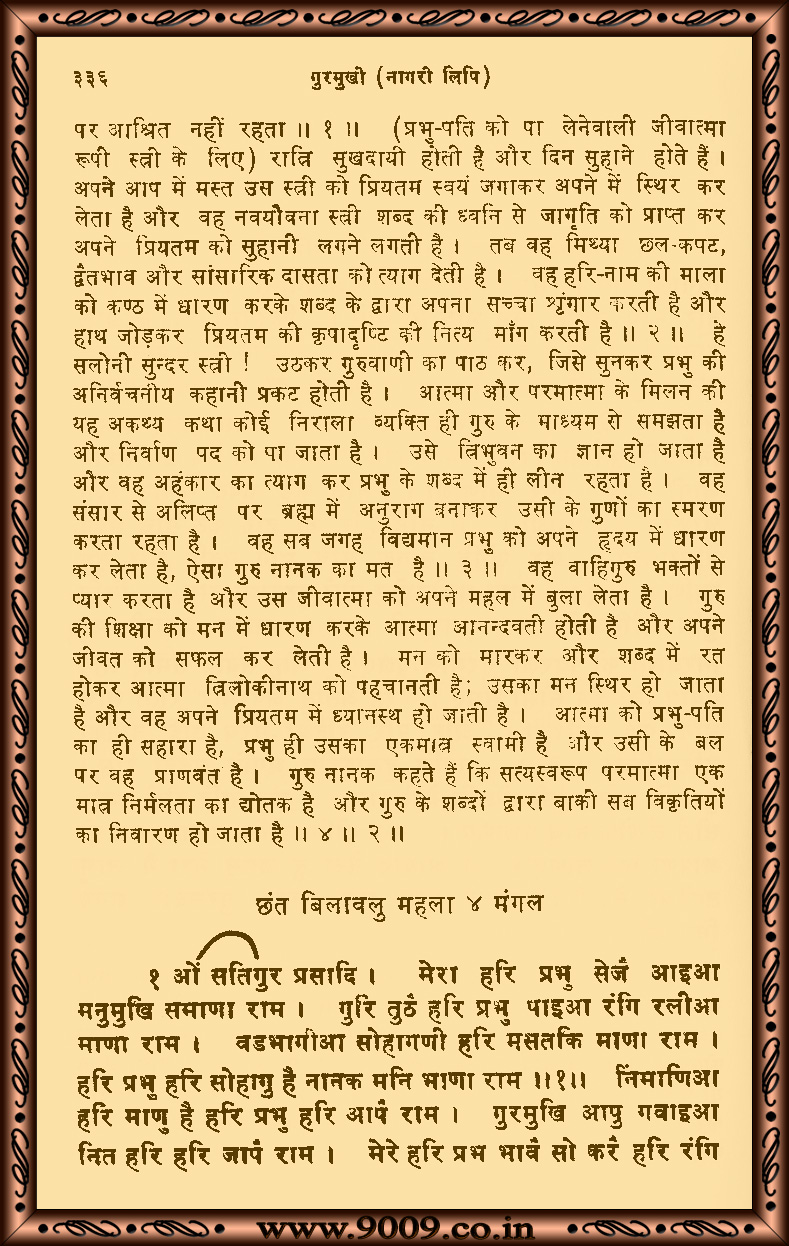 ३३६ गुरमुखी (नागरी लिपि)
पर आश्रित नहीं रहता ॥ १ ॥ (प्रभु-पति को पा लेनेवाली जीवात्मा
रूपी स्त्री के लिए) रात्रि सुखदायी होती है और दिन सुहाने होते हैं ।
अपने आप में मस्त उस स्त्री को प्रियतम स्वयं जगाकर अपने में स्थिर कर
लेता है और वह नवयौवना स्त्री शब्द की ध्वनि से जागृति को प्राप्त कर
अपने प्रियतम को सुहानी लगने लगती है । तब वह मिथ्या छल-कपट,
द्वैतभाव और सांसारिक दासता को त्याग देती है । वह हरि-नाम की माला
को कण्ठ में धारण करके शब्द के द्वारा अपना सच्चा श्रृंगार करती है और
हाथ जोड़कर प्रियतम की कृपादृष्टि की नित्य माँग करती है ॥ २ ॥ हे
सलोनी सुन्दर स्त्री ! उठकर गुरुवाणी का पाठ कर, जिसे सुनकर प्रभु की
अनिर्वचनीय कहानी प्रकट होती है । आत्मा और परमात्मा के मिलन की
यह अकथ्य कथा कोई निराला व्यक्ति ही गुरु के माध्यम से समझता है
और निर्वाण पद को पा जाता है । उसे त्रिभुवन का ज्ञान हो जाता है
और वह अहंकार का त्याग कर प्रभु के शब्द में ही लीन रहता है । वह
संसार से अलिप्त पर ब्रह्म में अनुराग बनाकर उसी के गुणों का स्मरण
करता रहता है । वह सब जगह विद्यमान प्रभु को अपने हृदय में धारण
कर लेता है, ऐसा गुरु नानक का मत है ॥ ३ ॥ वह वाहिगुरु भक्तों से
प्यार करता है और उस जीवात्मा को अपने महल में बुला लेता है । गुरु
की शिक्षा को मन में धारण करके आत्मा आनन्दवती होती है और अपने
जीवत को सफल कर लेती है । मन को मारकर और शब्द में रत
होकर आत्मा त्रिलोकीनाथ को पहचानती है; उसका मन स्थिर हो जाता
है और वह अपने प्रियतम में ध्यानस्थ हो जाती है । आत्मा को प्रभु-पति
का ही सहारा है, प्रभु ही उसका एकमात्र स्वामी है और उसी के बल
पर वह प्राणवंत है । गुरु नानक कहते हैं कि सत्यस्वरूप परमात्मा एक
मात्र निर्मलता का द्योतक है और गुरु के शब्दों द्वारा बाकी सब विकृतियों
का निवारण हो जाता है ॥ ४ ॥ २ ॥
छंत बिलावलु महला ४ मंगल
१ ओं सतिगुर प्रसादि । मेरा हरि प्रभु सेजै आइआ
मनुमुखि समाणा राम । गुरि तुठै हरि प्रभु पाइआ रंगि रलीआ
माणा राम । वडभागीआ सोहागणी हरि मसतकि माणा राम ।
हरि प्रभु हरि सोहागु है नानक मनि भाणा राम ॥१॥ निंमाणिआ
हरि माणु है हरि प्रभु हरि आपै राम । गुरमुखि आपु गवाइआ
नित हरि हरि जापै राम । मेरे हरि प्रभ भावै सो करै हरि रंगि
www.9009.co.in